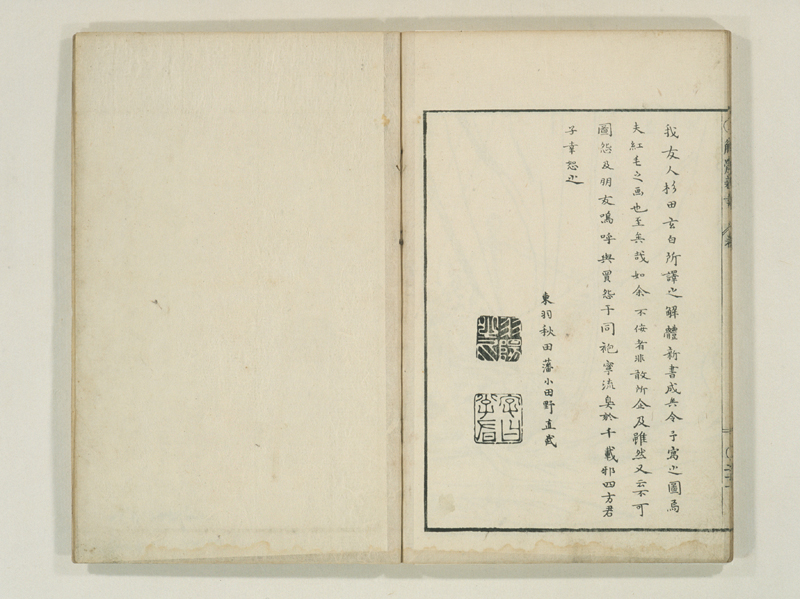 我友人杉田玄白所譯之解體新書成矣令予寫之圖焉
夫紅毛之画也至矣哉如余不佞者非敢所企及雖然又云不可
圖怨及朋友嗚呼與買怨于同袍寧流臭於千載邪四方君
子幸恕之
東羽秋田藩小田野直武